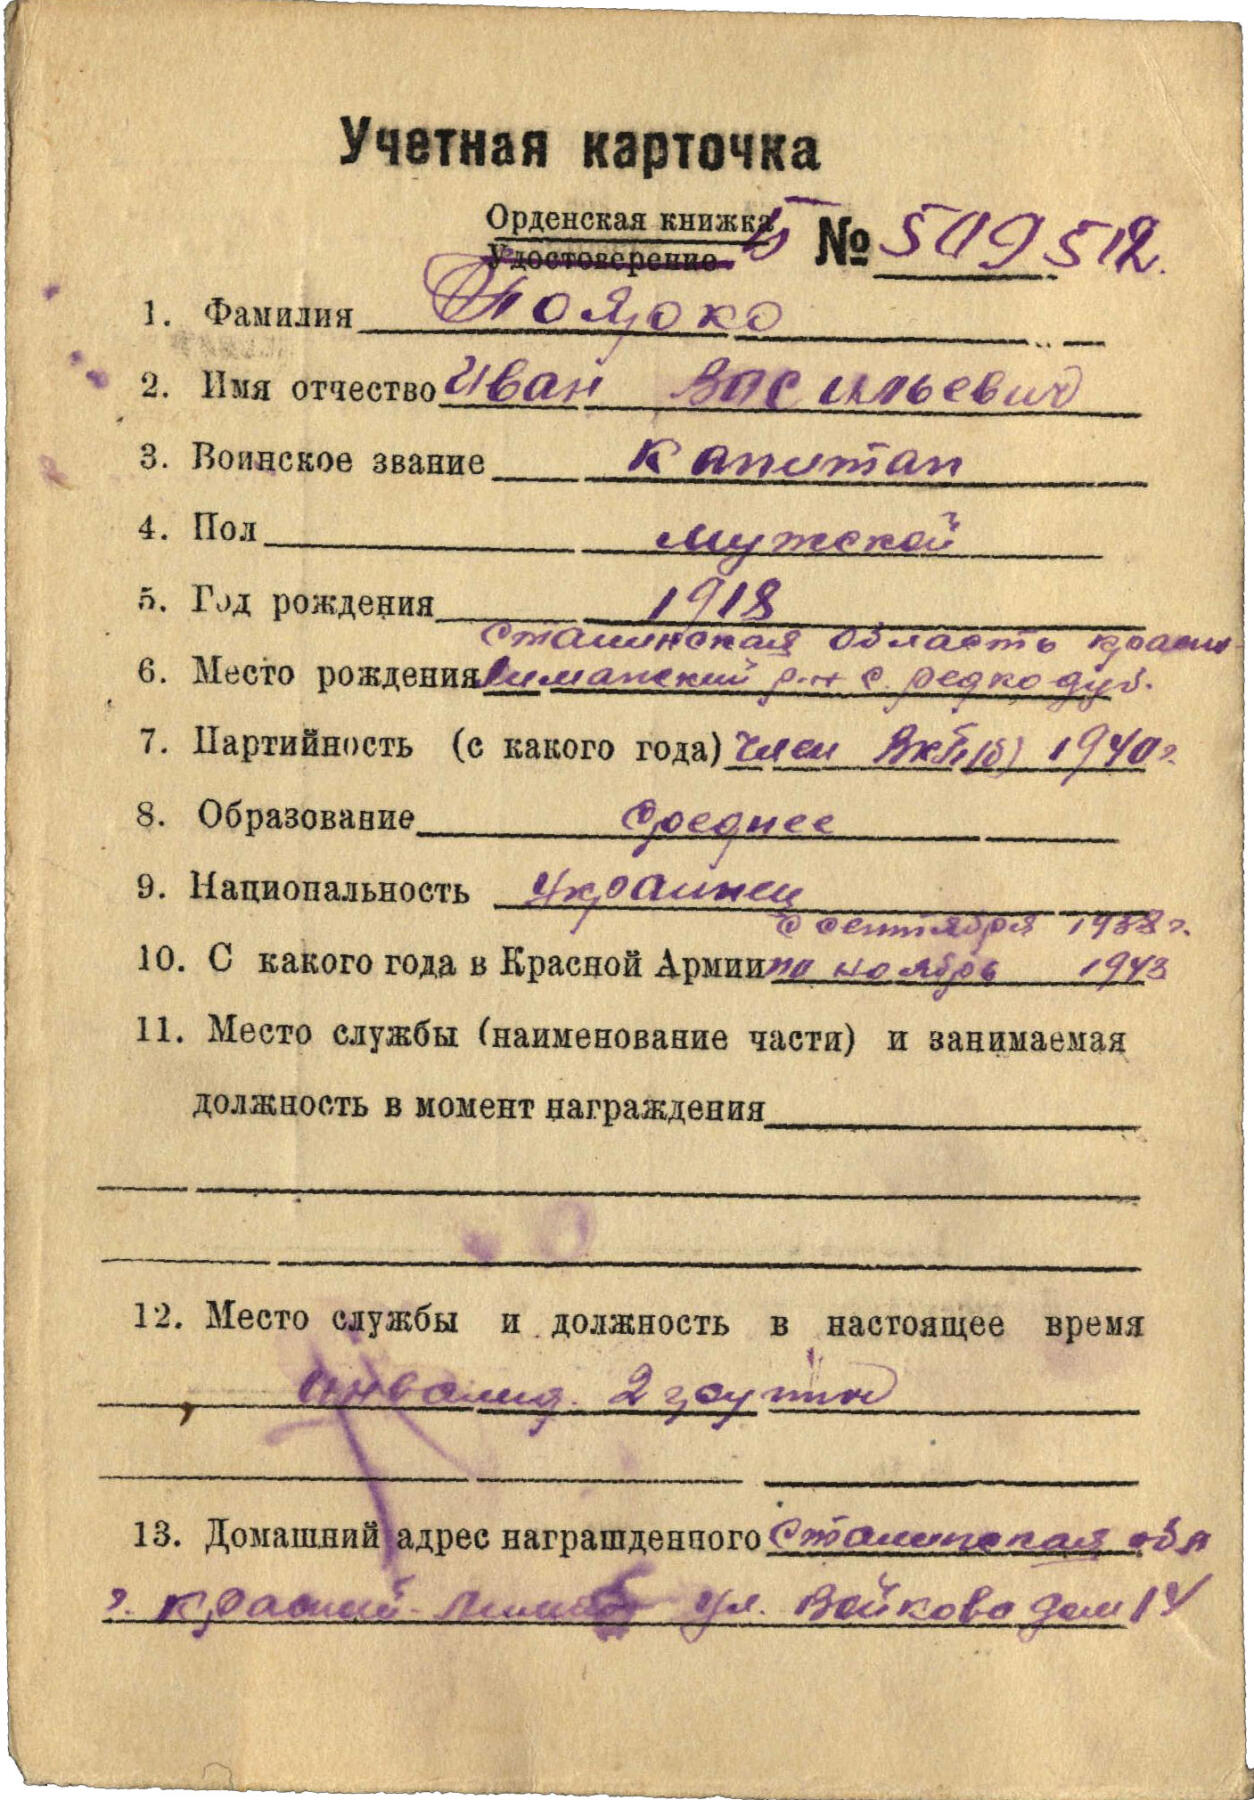 Учетная карточка
Орденская книжка Б № 509512.
Удостоверение
1. Фамилия Поярко
2. Имя отчество Иван Васильевич
3. Воинское звание Капитан
4. Пол мужской
5. Год рождения 1918
Сталинская область красно
6. Место рождения Лиманский р-н с. редкодуб.
7. Партийность (с какого года) член ВКП(б) 1940 г.
8. Образование Среднее
9. Национальность Украинец
с сентября 1938 г.
10. С какого года в Красной Армии по ноябрь 1943
11. Место службы (наименование части) и занимаемая
должность в момент награждения
12. Место службы и должность в настоящее время
инвалид. 2 группы
13. Домашний адрес награжденного Сталинская обл
г. Красный-Лиман ул. Войкова дом 14